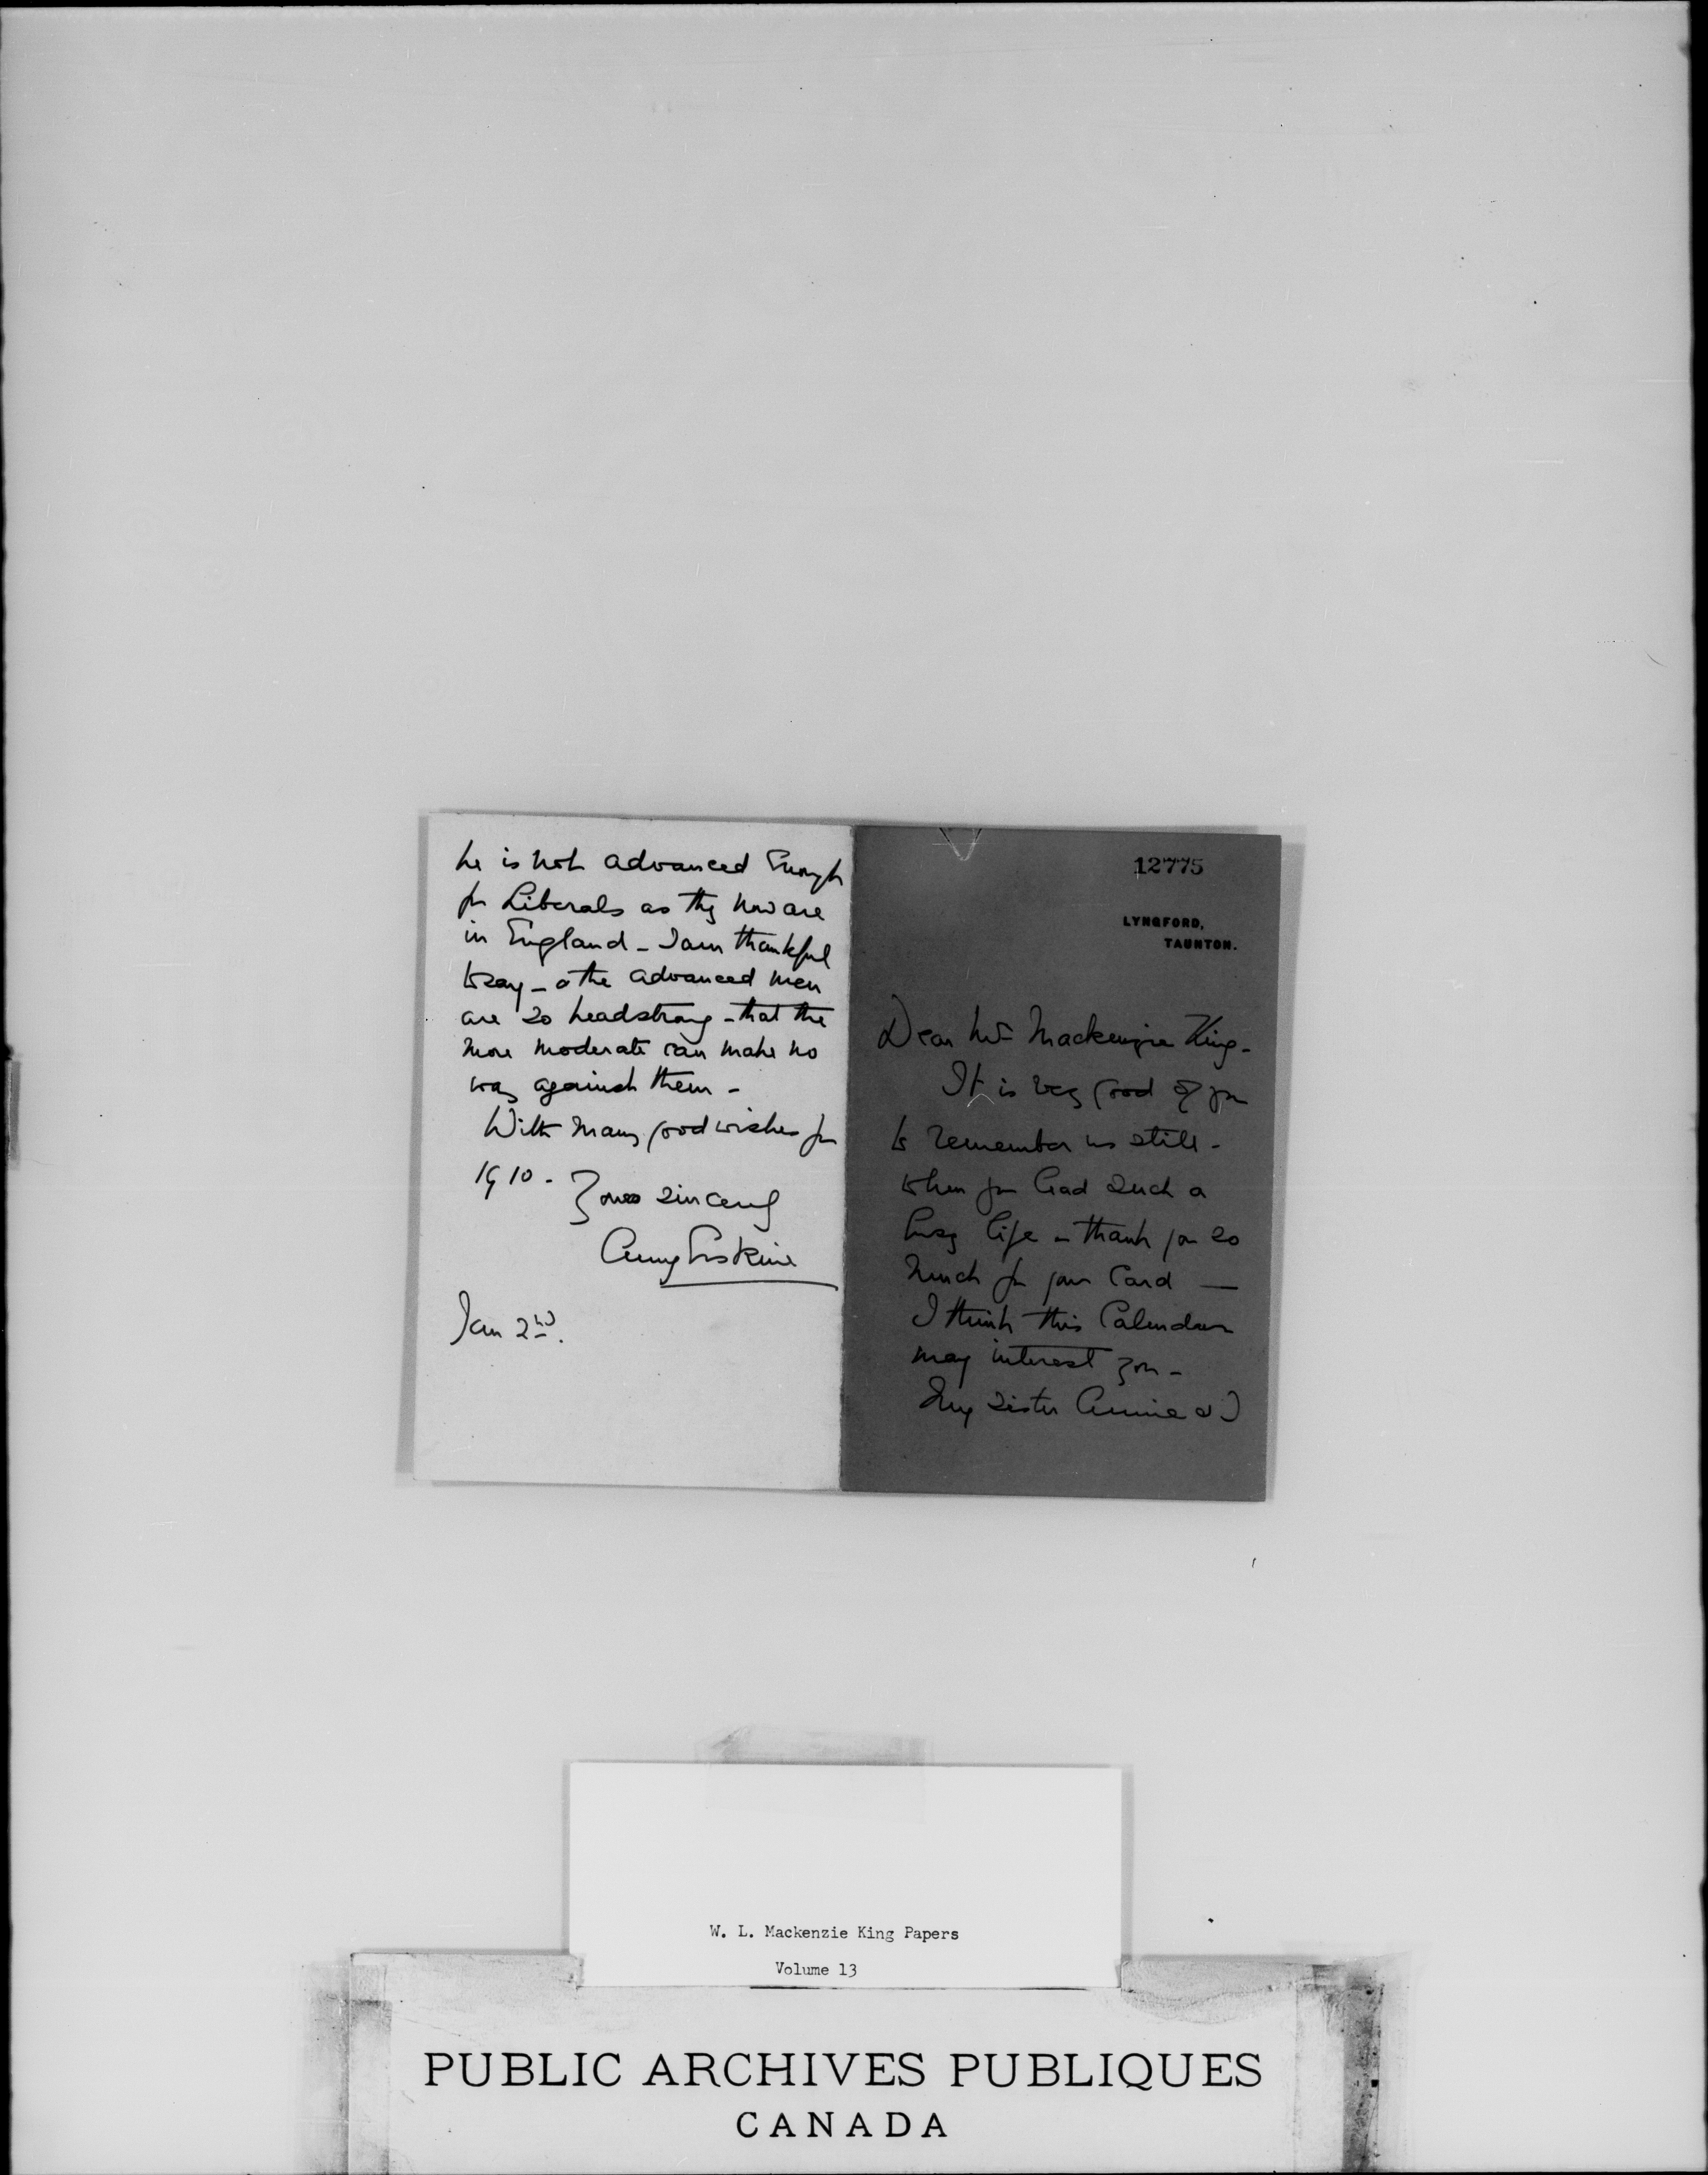 he is not advanced Enough
for Liberals as they now are
in England - I am thankful
to say - & the advanced men
are so headstrong - that the
more moderate can make no
way against them -
With many good wishes for
1910 -
Yours sincerely
Amy Erskine
Jan 2nd.
12775
LYNGFORD,
TAUNTON.
Dear Mr Mackenzie King -
It is very good of you
to remember us still -
when you lead such a
busy life - thank you so
much for your Card —
I think this Calendar
may interest you -
My sister Annie & I
W. L. Mackenzie King Papers
Volume 13
PUBLIC ARCHIVES PUBLIQUES
CANADA